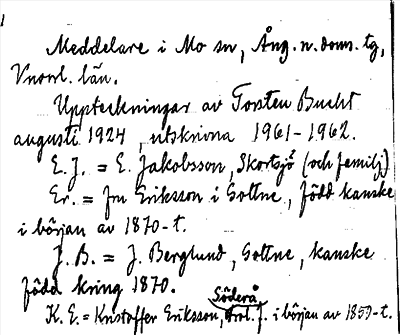 Meddelare i Mo sn, Ång. n. doms. tg,
Vnorrl. län.
Uppteckningar av Torsten Bucht
augusti 1924, utskrivna 1961-1962.
E. J. = E. Jakobsson, Skortsjö (och familj)
Er. = fru Eriksson i Gottne, född kanske
i början av 1870-t.
J. B. = J. Berglund, Gottne, kanske
född kring 1870.
Söderå
K. E. = Kristoffer Eriksson, trol. f. i början av 1859-t.